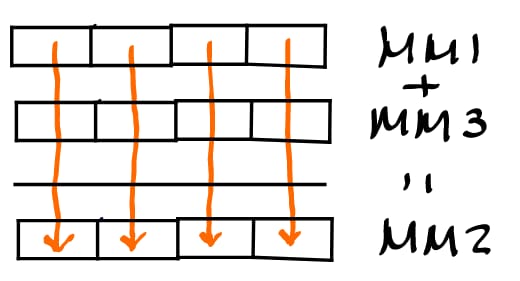 MM1
+
MM3
"
MM2